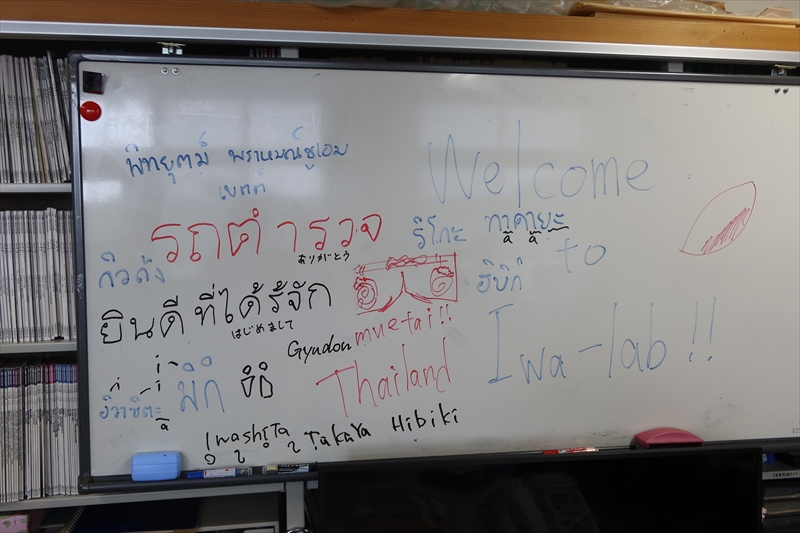 พิทยุตม์ พราหมณ์ชูเอม
เบตต์
Welcome
รถตำรวจ
ありがとう
ริโกะ
ทาคายะ
to
กิวด้ง
ยินดีที่ได้รู้จัก
はじめまして
ฮิบิกิ
Gyudon
muetai!!
Thailand
Iwa-lab!!
มิกิ
อิวาชิตะ
Iwashita
Takaya
Hibiki